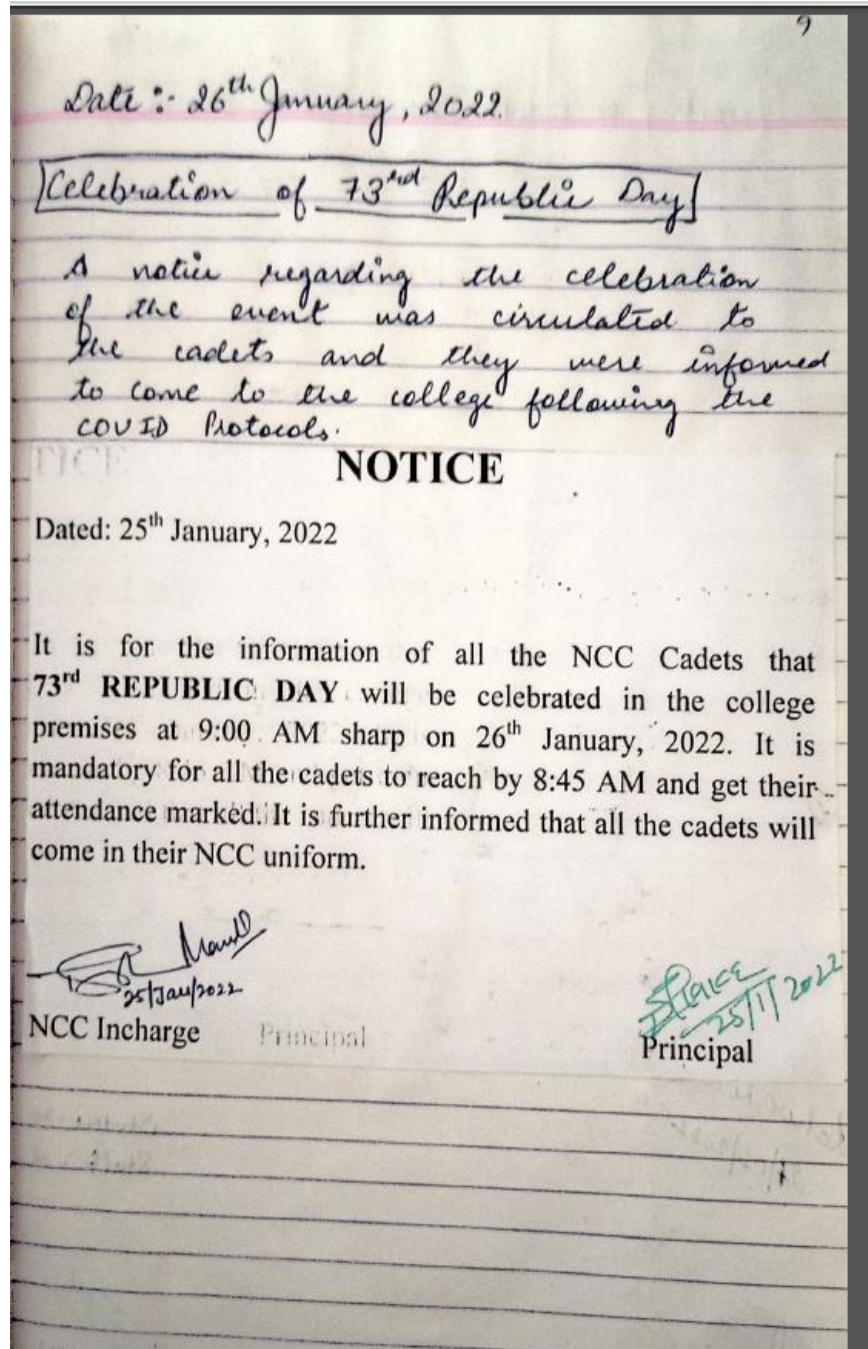 9
Date :- 26th January, 2022.
Celebration of 73rd Republic Day
A notice regarding the celebration
of the event was circulated to
the cadets and they were informed
to come to the college following the
COVID Protocols.
TICE
NOTICE
Dated: 25th January, 2022
It is for the information of all the NCC Cadets that
73rd REPUBLIC DAY will be celebrated in the college
premises at 9:00 AM sharp on 26th January, 2022. It is
mandatory for all the cadets to reach by 8:45 AM and get their
attendance marked. It is further informed that all the cadets will
come in their NCC uniform.
25/Jan/2022
25/1/2022
NCC Incharge Principal Principal